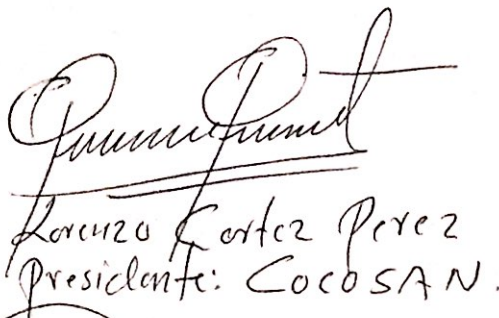 Lorenzo Cortez Perez
Presidente: COCOSAN.